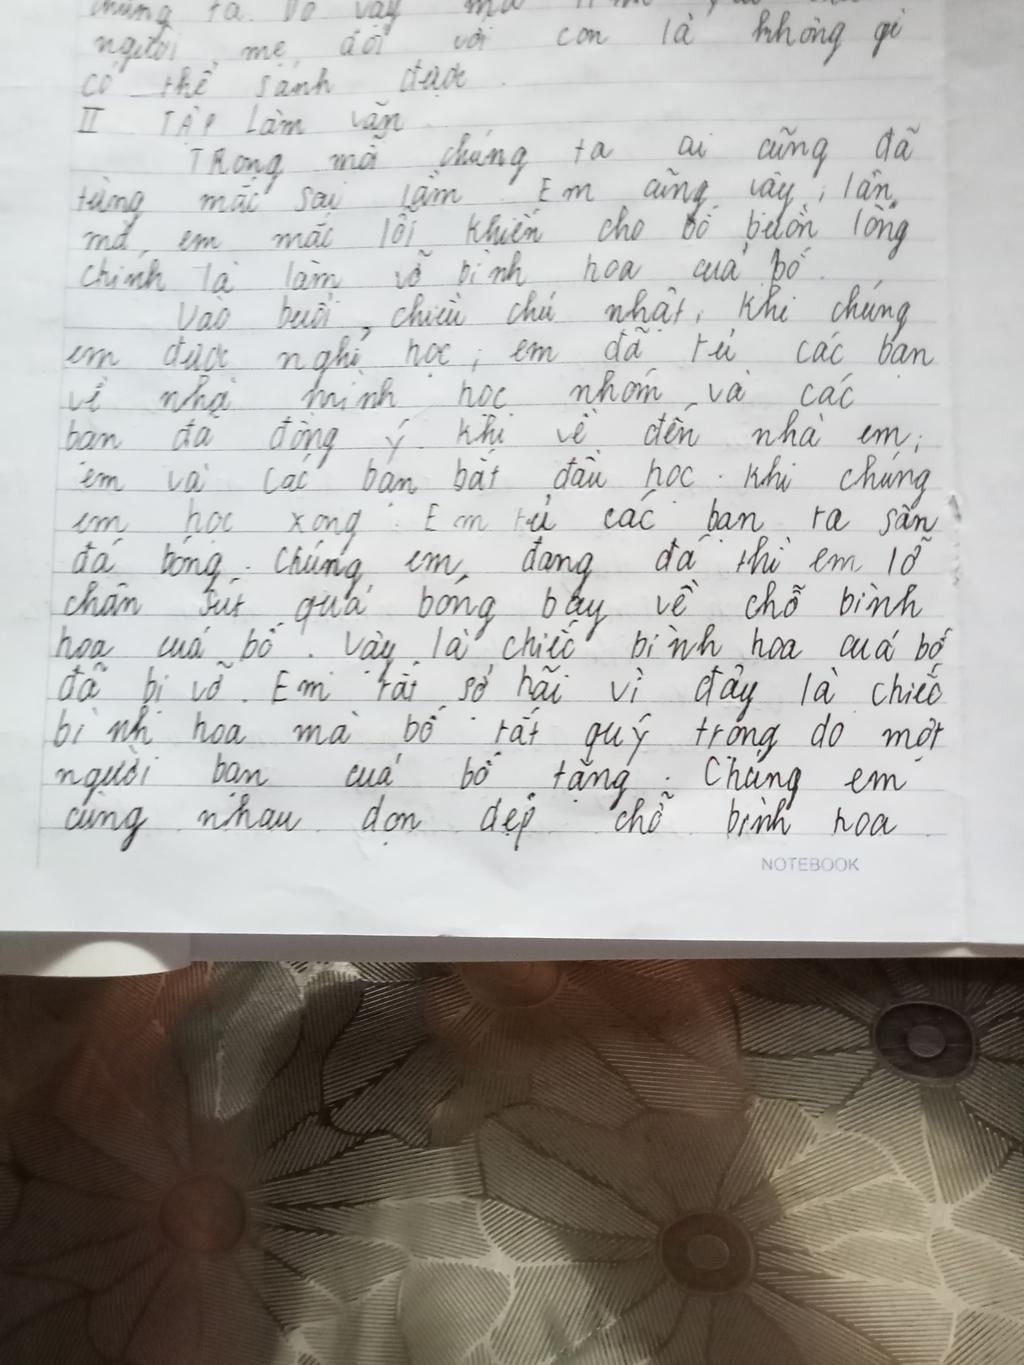 chúng ta. Do vậy mà
người mẹ đối với con là không gì
có thể sánh được.
II TẬP Làm văn
TRong mỗi chúng ta ai cũng đã
từng mắc sai lầm. Em cũng vậy, lần
mà em mắc lỗi khiến cho bố buồn lòng
chính là làm vỡ bình hoa của bố.
Vào buổi chiều chủ nhật, khi chúng
em được nghỉ học, em đã rủ các bạn
về nhà mình học nhóm và các
bạn đã đồng ý khi về đến nhà em,
em và các bạn bắt đầu học. Khi chúng
em học xong. Em rủ các bạn ra sân
đá bóng. Chúng em đang đá thì em lỡ
chân sút quả bóng bay về chỗ bình
hoa của bố. Vậy là chiếc bình hoa của bố
đã bị vỡ. Em rất sợ hãi vì đây là chiếc
bình hoa mà bố rất quý trọng do một
người bạn của bố tặng. Chúng em
cùng nhau dọn dẹp chỗ bình hoa
NOTEBOOK